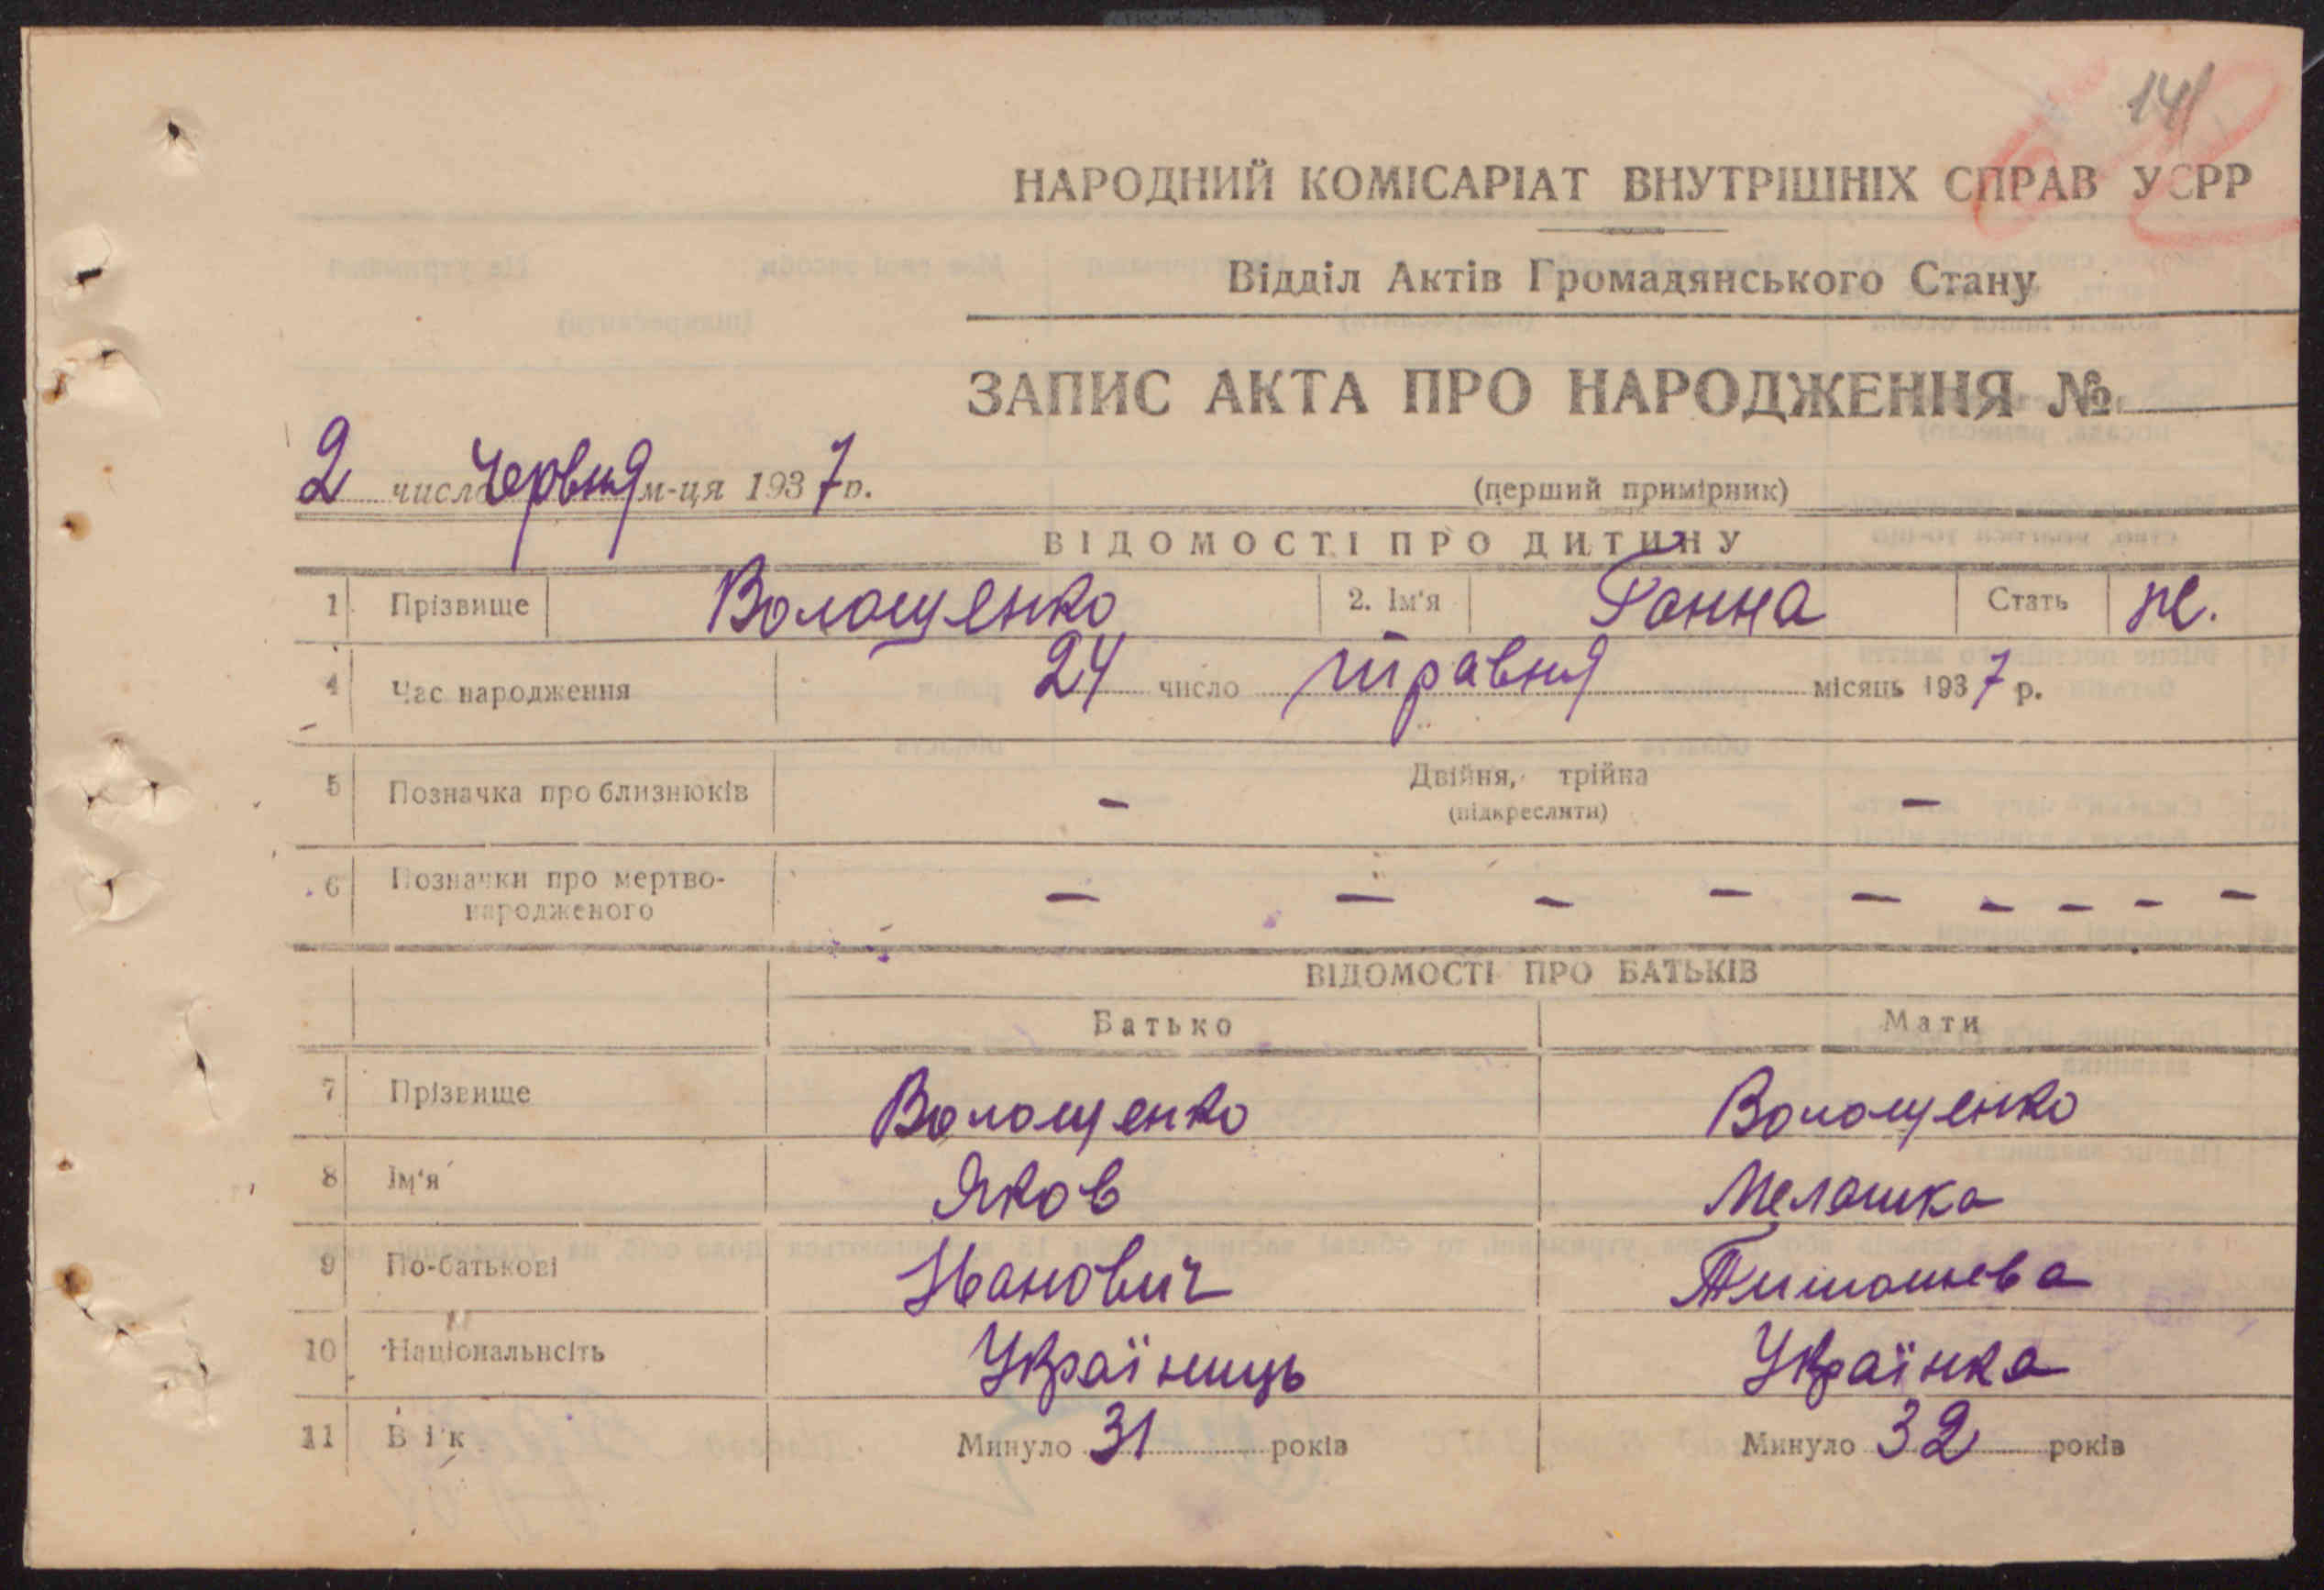 141
НАРОДНИЙ КОМІСАРІАТ ВНУТРІШНІХ СПРАВ УСРР
Відділ Актів Громадянського Стану
ЗАПИС АКТА ПРО НАРОДЖЕННЯ №
2 число Червня м-ця 1937 р.
(перший примірник)
ВІДОМОСТІ ПРО ДИТИНУ
1 Прізвище Волощенко 2. Ім'я Ганна Стать ж.
4 Час народження 24 число травня місяць 1937 р.
5 Позначка про близнюків — Двійня, трійна —
(підкреслити)
6 Позначки про мертво-
народженого — — — — — — — — —
ВІДОМОСТІ ПРО БАТЬКІВ
Батько Мати
7 Прізвище Волощенко Волощенко
8 Ім'я Яков Мелашка
9 По-батькові Іванович Тимошева
10 Національнсіть Українць Українка
11 Вік Минуло 31 років Минуло 32 років